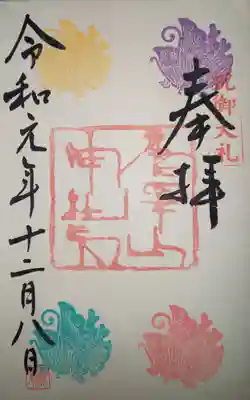 祝御大礼
奉拝
令和元年十二月八日